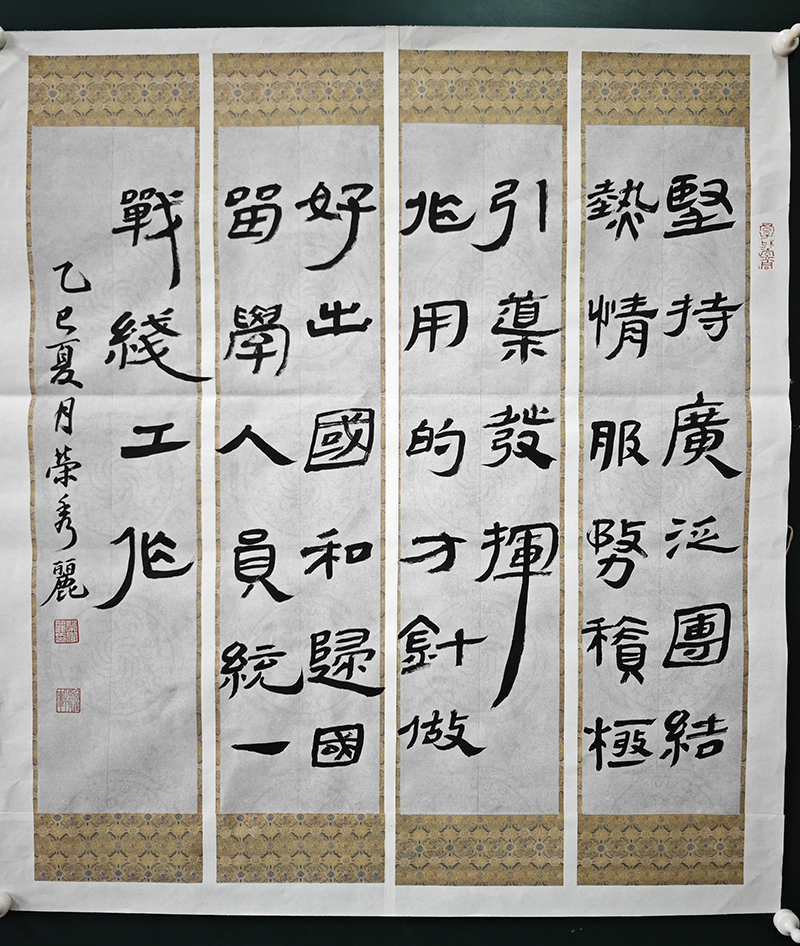 堅持廣泛團結
熱情服務積極
引導發揮
作用的方針做
好出國和歸國
留學人員統一
戰綫工作
乙巳夏月榮秀麗